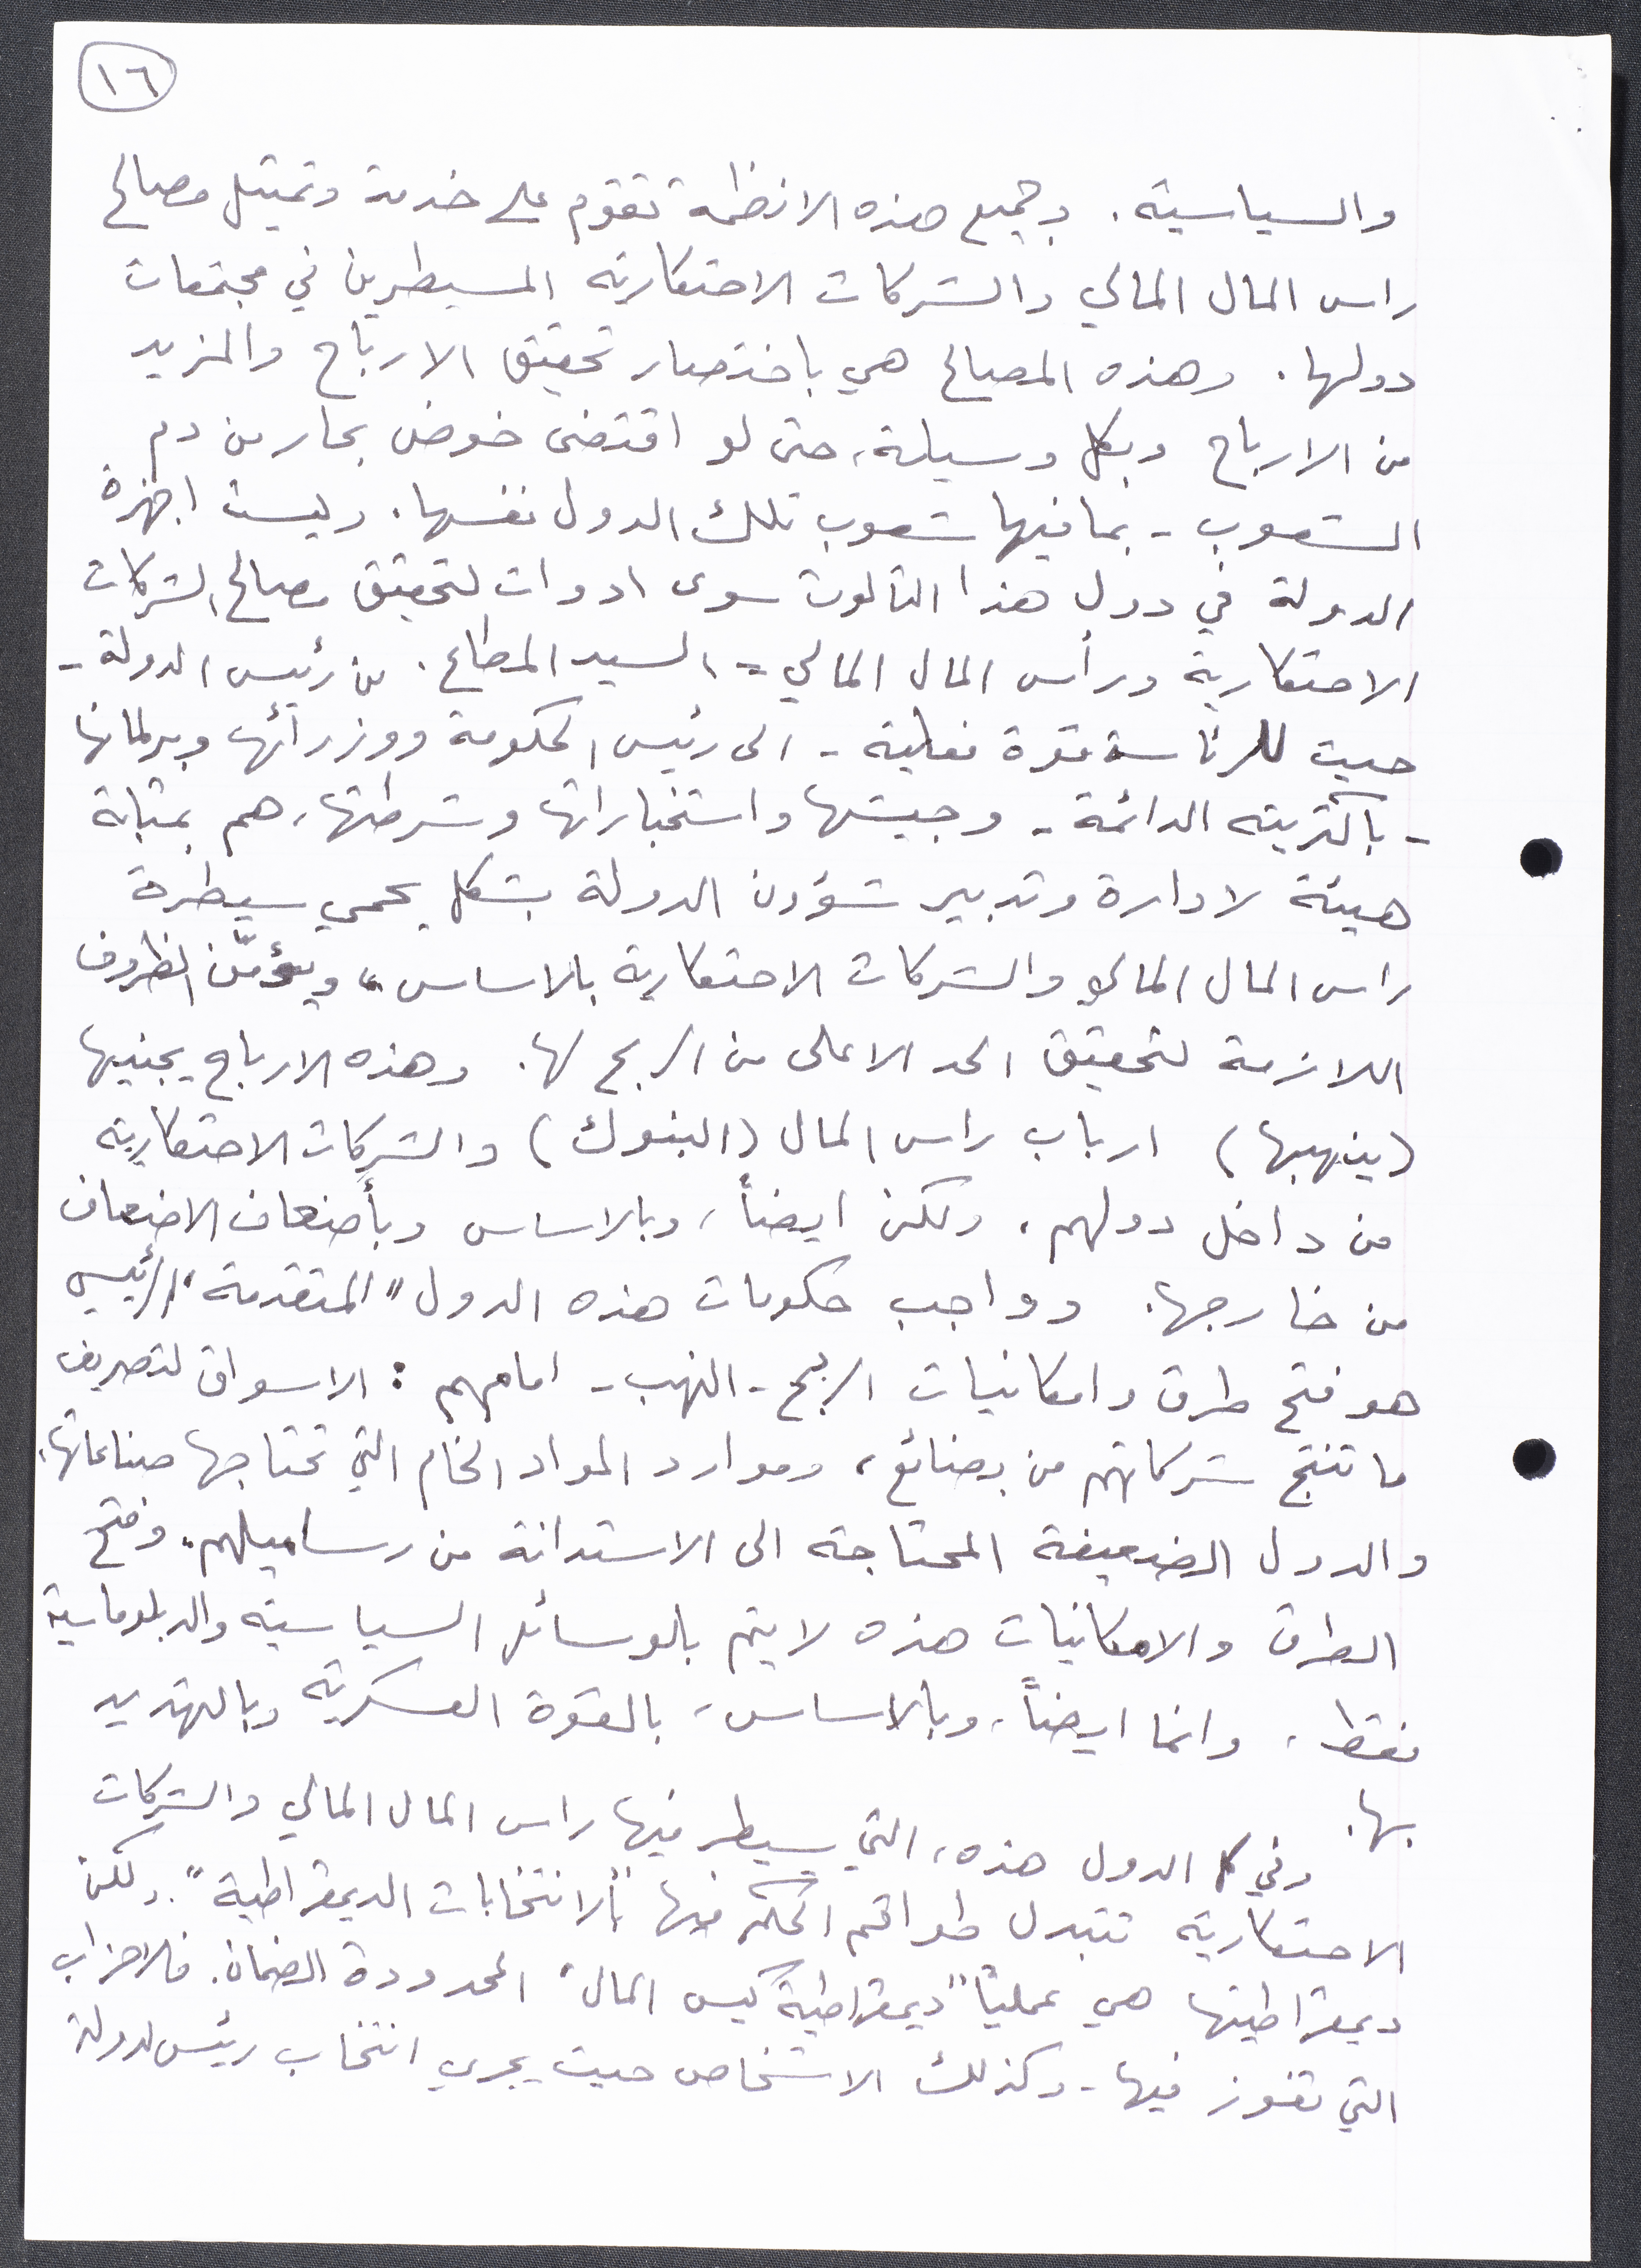 ١٦
والسياسية. وجميع هذه الانظمة تقوم على خدمة وتمثيل مصالح
راس المال المالي والشركات الاحتكارية المسيطرين في مجتمعات
دولها. وهذه المصالح هي باختصار تحقيق الارباح والمزيد
من الارباح وبكل وسيلة، حتى لو اقتضى خوض بحار من دم
الشعوب - بما فيها شعوب تلك الدول نفسها. وليست اجهزة
الدولة في دول هذا الثالوث سوى ادوات لتحقيق مصالح الشركات
الاحتكارية ورأس المال المالي = السيد المطاع. من رئيس الدولة -
حيث للرئاسة قوة فعلية - الى رئيس الحكومة ووزرائها وبرلمانها
- باكثريته الدائمة - وجيشها واستخباراتها وشرطتها، هم بمثابة
هيئة لادارة وتدبير شؤون الدولة بشكل يحمي سيطرة
راس المال المالي والشركات الاحتكارية بالاساس، ويؤمّن الظروف
اللازمة لتحقيق الحد الاعلى من الربح لها. وهذه الارباح يجنيها
(ينهبها) ارباب راس المال (البنوك) والشركات الاحتكارية
من داخل دولهم. ولكن ايضاً، وبالاساس وبأضعاف الاضعاف
من خارجها. وواجب حكومات هذه الدول "المتقدمة" الرئيسي
هو فتح طرق وامكانيات الربح - النهب - امامهم: الاسواق لتصريف
ما تنتج شركاتهم من بضائع، وموارد المواد الخام التي تحتاجها صناعاتها.
والدول الضعيفة المحتاجة الى الاستدانة من رساميلهم. وفتح
الطرق والامكانيات هذه لا يتم بالوسائل السياسية والدبلوماسية
فقط، وانما ايضاً، وبالاساس، بالقوة العسكرية وبالتهديد
بها.
وفي الدول هذه، التي يسيطر فيها راس المال المالي والشركات
الاحتكارية تتبدل طواقم الحكم فيها "بالانتخابات الديمقراطية". ولكن
ديمقراطيتها هي عملياً "ديمقراطية كيس المال" المحدودة الضمان. فالاحزاب
التي تفوز فيها - وكذلك الاشخاص حيث يجري انتخاب رئيس لدولة